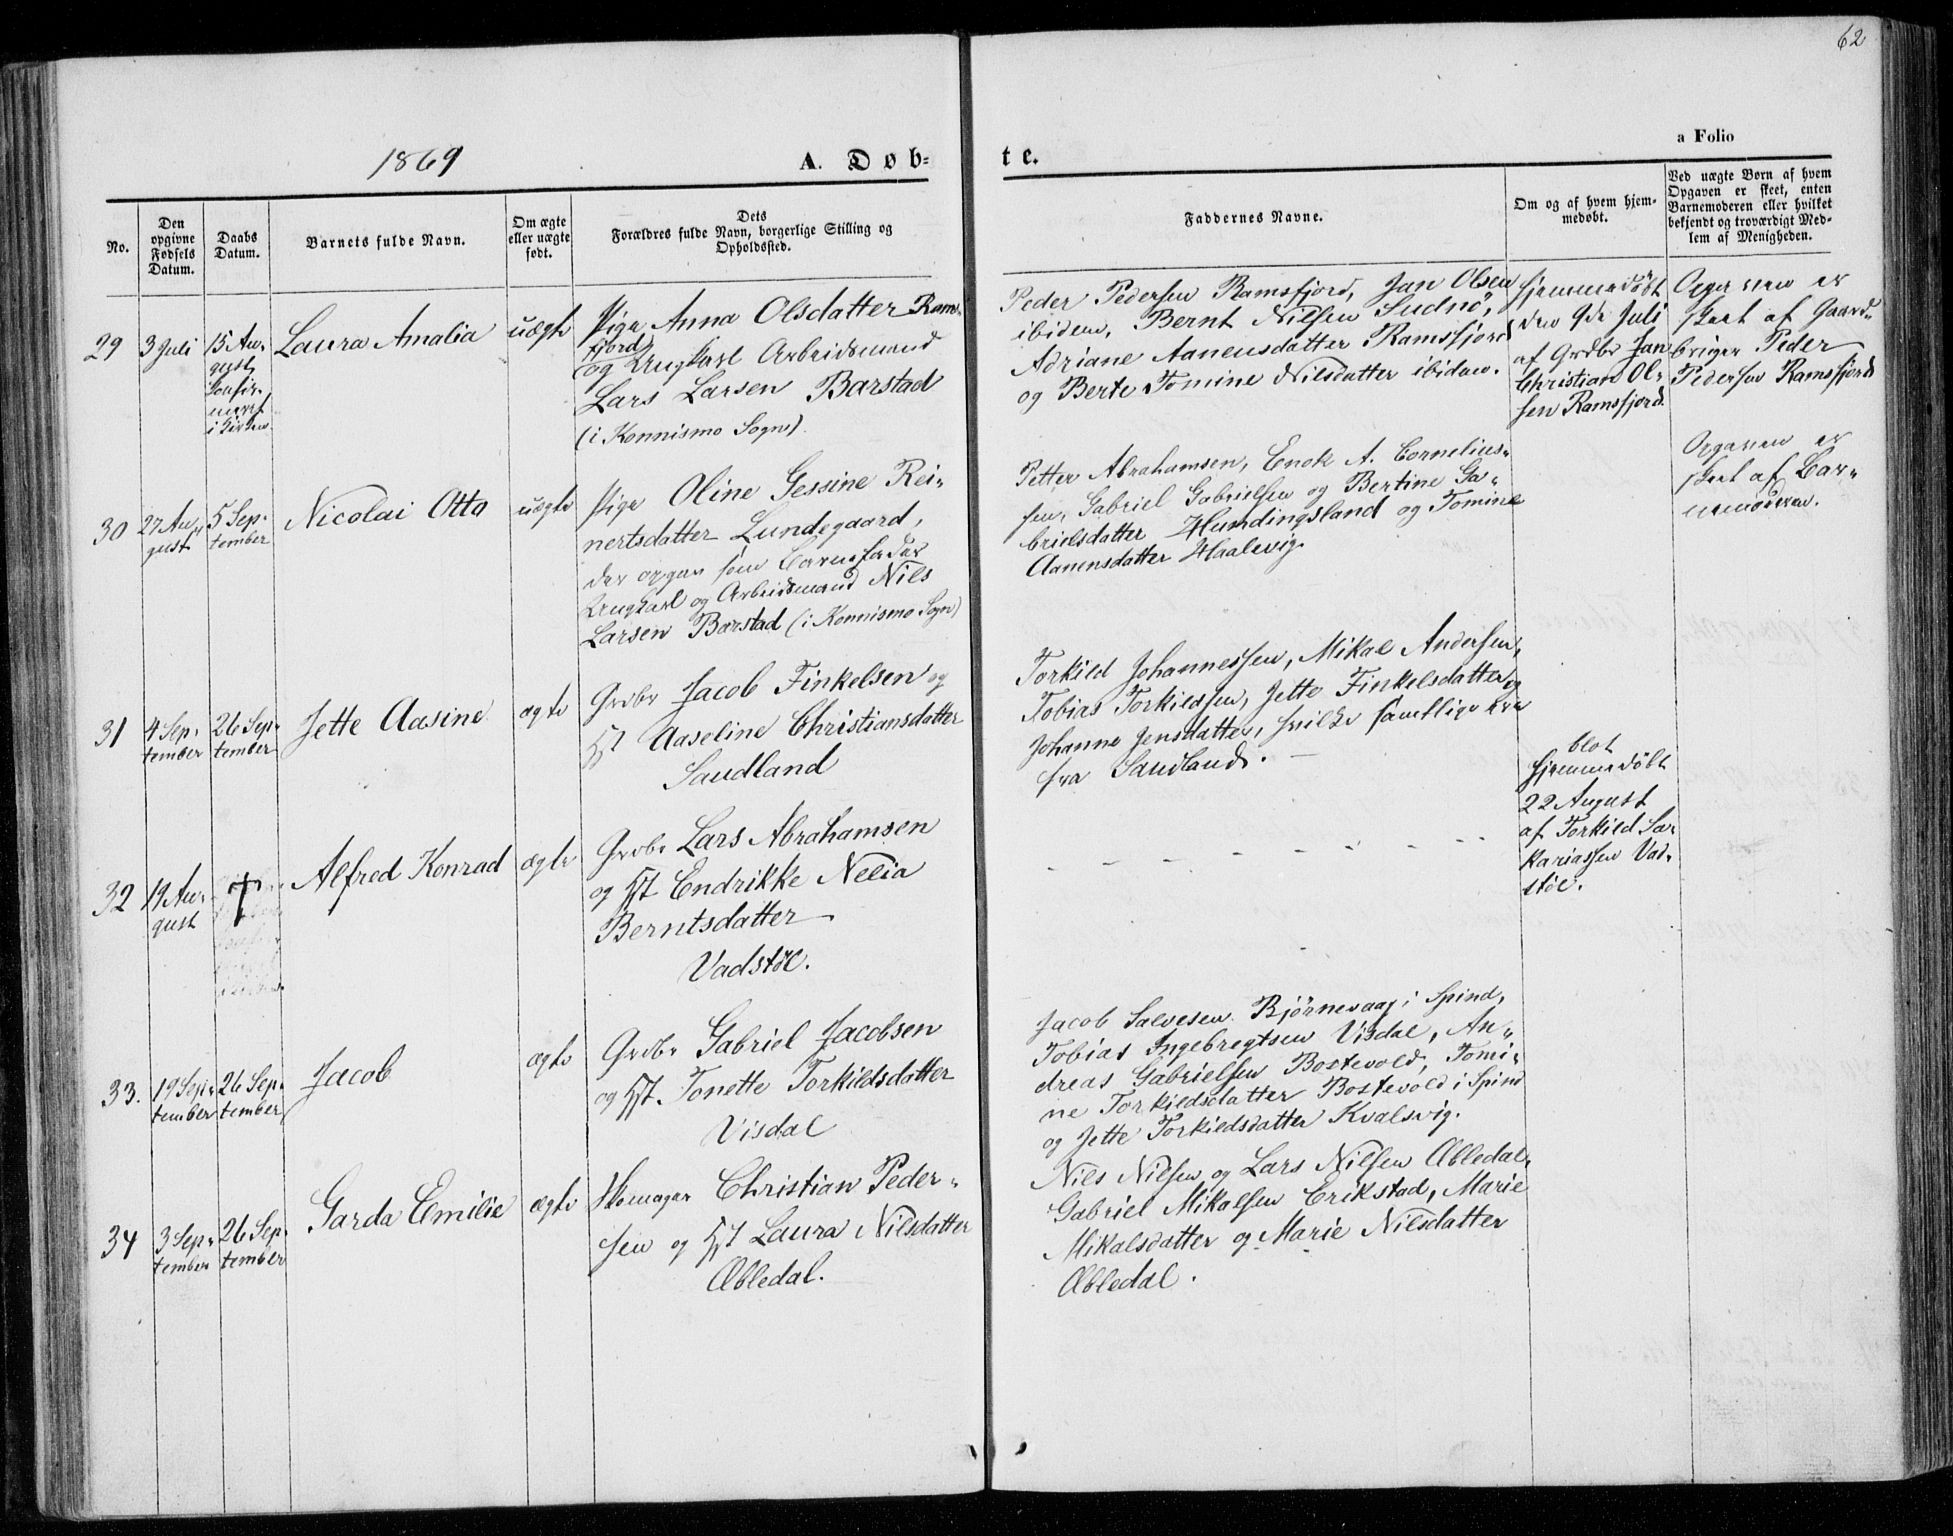 62
1869
A. Døb-
te.
a Folio
No.
Den
opgivne
Fødsels
Datum.
Daabs
Datum.
Barnets fulde Navn.
Om ægte
eller uægte
født.
Dets
Forældres fulde Navn, borgerlige Stilling og
Opholdssted.
Faddernes Navne.
Om og af hvem hjem-
medøbt.
Ved uægte Børn af hvem
Opgaven er skeet, enten
Barnemoderen eller hvilket
bekjendt og troværdigt Med-
lem af Menigheden.
29
3 Juli
15 Au-
gust
i Kirken
Laura Amalia
uægte
Pige Anna Olsdatter Rams-
fjord
og Ungkarl Arbeidsmand
Lars Larsen Barstad
(i Konnismo Sogn)
Peder Pedersen Ramsfjord, Jan Olsen
ibidem, Bernt Nilsen Sudnö,
Adriane Aanensdatter Ramsfjord
og Berte Tomine Nilsdatter ibidem.
Hjemmedöbt
den 9de Juli
af Grdbr Jan
Christian Ol-
sen Ramsfjord
Opgaven er
skeet af Gaard-
bruger Peder
Pedersen Ramsfjord
30
27 Au-
gust
5 Sep-
tember
Nicolai Otto
uægte
Pige Oline Gessine Rei-
nertsdatter Lundegaard,
der opgav som Barnefader
Ungkarl og Arbeidsmand Nils
Larsen Barstad (i Konnismo Sogn)
Petter Abrahamsen, Enok A. Cornelius-
sen, Gabriel Gabrielsen og Bertine Ga-
brielsdatter Humdingsland og Tomine
Aanensdatter Haalevig.
Opgaven er
skeet af Bar-
nemoderen.
31
4 Sep-
tember
26 Sep-
tember
Jette Aasine
ægte
Grdbr Jacob Finkelsen og
Hst Aaseline Christiansdatter
Sandland
Torkild Johannessen, Mikal Andersen,
Tobias Torkildsen, Jette Finkelsdatter og
Johanne Jensdatter, hvilke samtlige ere
fra Sandland.
32
19 Au-
gust
†
Alfred Konrad
ægte
Grdbr Lars Abrahamsen
og Hst Endrikke Nelia
Berntsdatter
Vadstöl.
blot
Hjemmedöbt
22 August
af Torkild Sa-
kariassen Vad-
stöl.
33.
19 Sep-
tember
26 Sep-
tember
Jacob
ægte
Grdbr Gabriel Jacobsen
og Hst. Tonette Torkildsdatter
Visdal
Jacob Salvesen Bjørnevaag i Spind,
Tobias Ingebregtsen Visdal, An-
dreas Gabrielsen Bostevold, Tomi-
ne Torkildsdatter Bostevold i Spind
og Jette Torkildsdatter Kvalsvig.
34
3 Sep-
tember
26 Sep-
tember
Garda Emilie
ægte
Skomager Christian Peder-
sen og Hst Laura Nilsdatter
Æbledal.
Nils Nilsen og Lars Nilsen Æbledal,
Gabriel Mikalsen Erikstad, Marie
Mikalsdatter og Marie Nilsdatter
Æbledal.